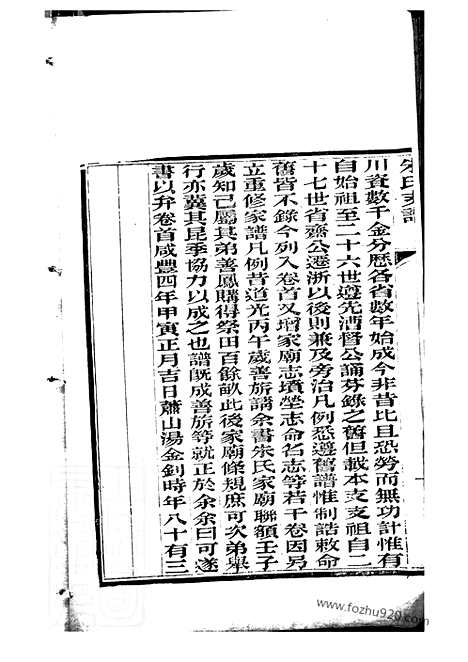 朱氏支譜
川資數千金分歷各省數年始成今非昔比且恐勞而無功計惟有
自始祖至二十六世遵先漕督公誦芬錄之舊但載本支支祖自二
十七世省齋公遷浙以後則兼及旁治凡例悉遵舊譜惟制誥敕命
舊皆不錄今列入卷首又增家廟志墳塋志命名志等若干卷因另
立重修家譜凡例昔道光丙午歲善旂請余書朱氏家廟聯額壬子
歲知已屬其弟善鳳購得祭田百餘畝此後家廟條規庶可次弟舉
行亦冀其昆季協力以成之也譜旣成善旂等就正於余余曰可遂
書以弁卷首咸豐四年甲寅正月吉日蕭山湯金釗時年八十有三
www.fozhu920.com